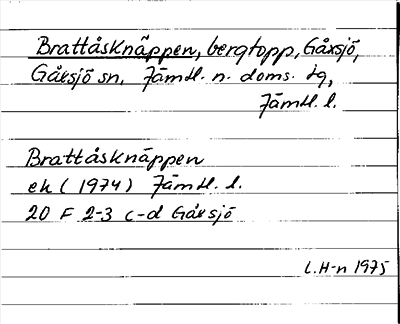 Brattåsknäppen, bergtopp, Gåxsjö,
Gåxsjö sn. Jämtl. n. doms. tg,
Jämtl. l.
Brattåsknäppen
ek (1974) Jämtl. l.
20 F 2-3 c-d Gåxsjö
L.H-n 1975